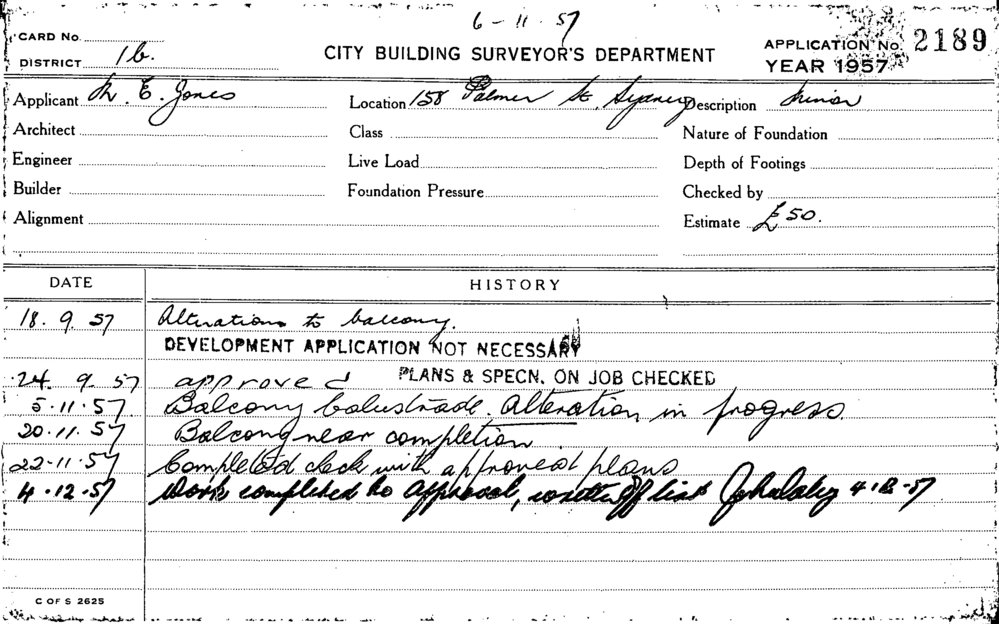 6 - 11 · 57
CARD No.
DISTRICT 1b.
CITY BUILDING SURVEYOR'S DEPARTMENT
APPLICATION No. 2189
YEAR 1957
Applicant E. Jones
Location 158 Palmer St. Sydney
Description Minor
Architect
Class
Nature of Foundation
Engineer
Live Load
Depth of Footings
Builder
Foundation Pressure
Checked by
Alignment
Estimate £50.
DATE
HISTORY
18. 9. 57 Alterations to balcony.
DEVELOPMENT APPLICATION NOT NECESSARY
24. 9. 57 approved PLANS & SPECN. ON JOB CHECKED
5·11·57. Balcony balustrade. Alteration in progress
20·11·57 Balcony near completion.
22-11·57 Completed check with approved plans
4·12·57 Work completed to approval, written off list 4·12·57
C OF S 2625